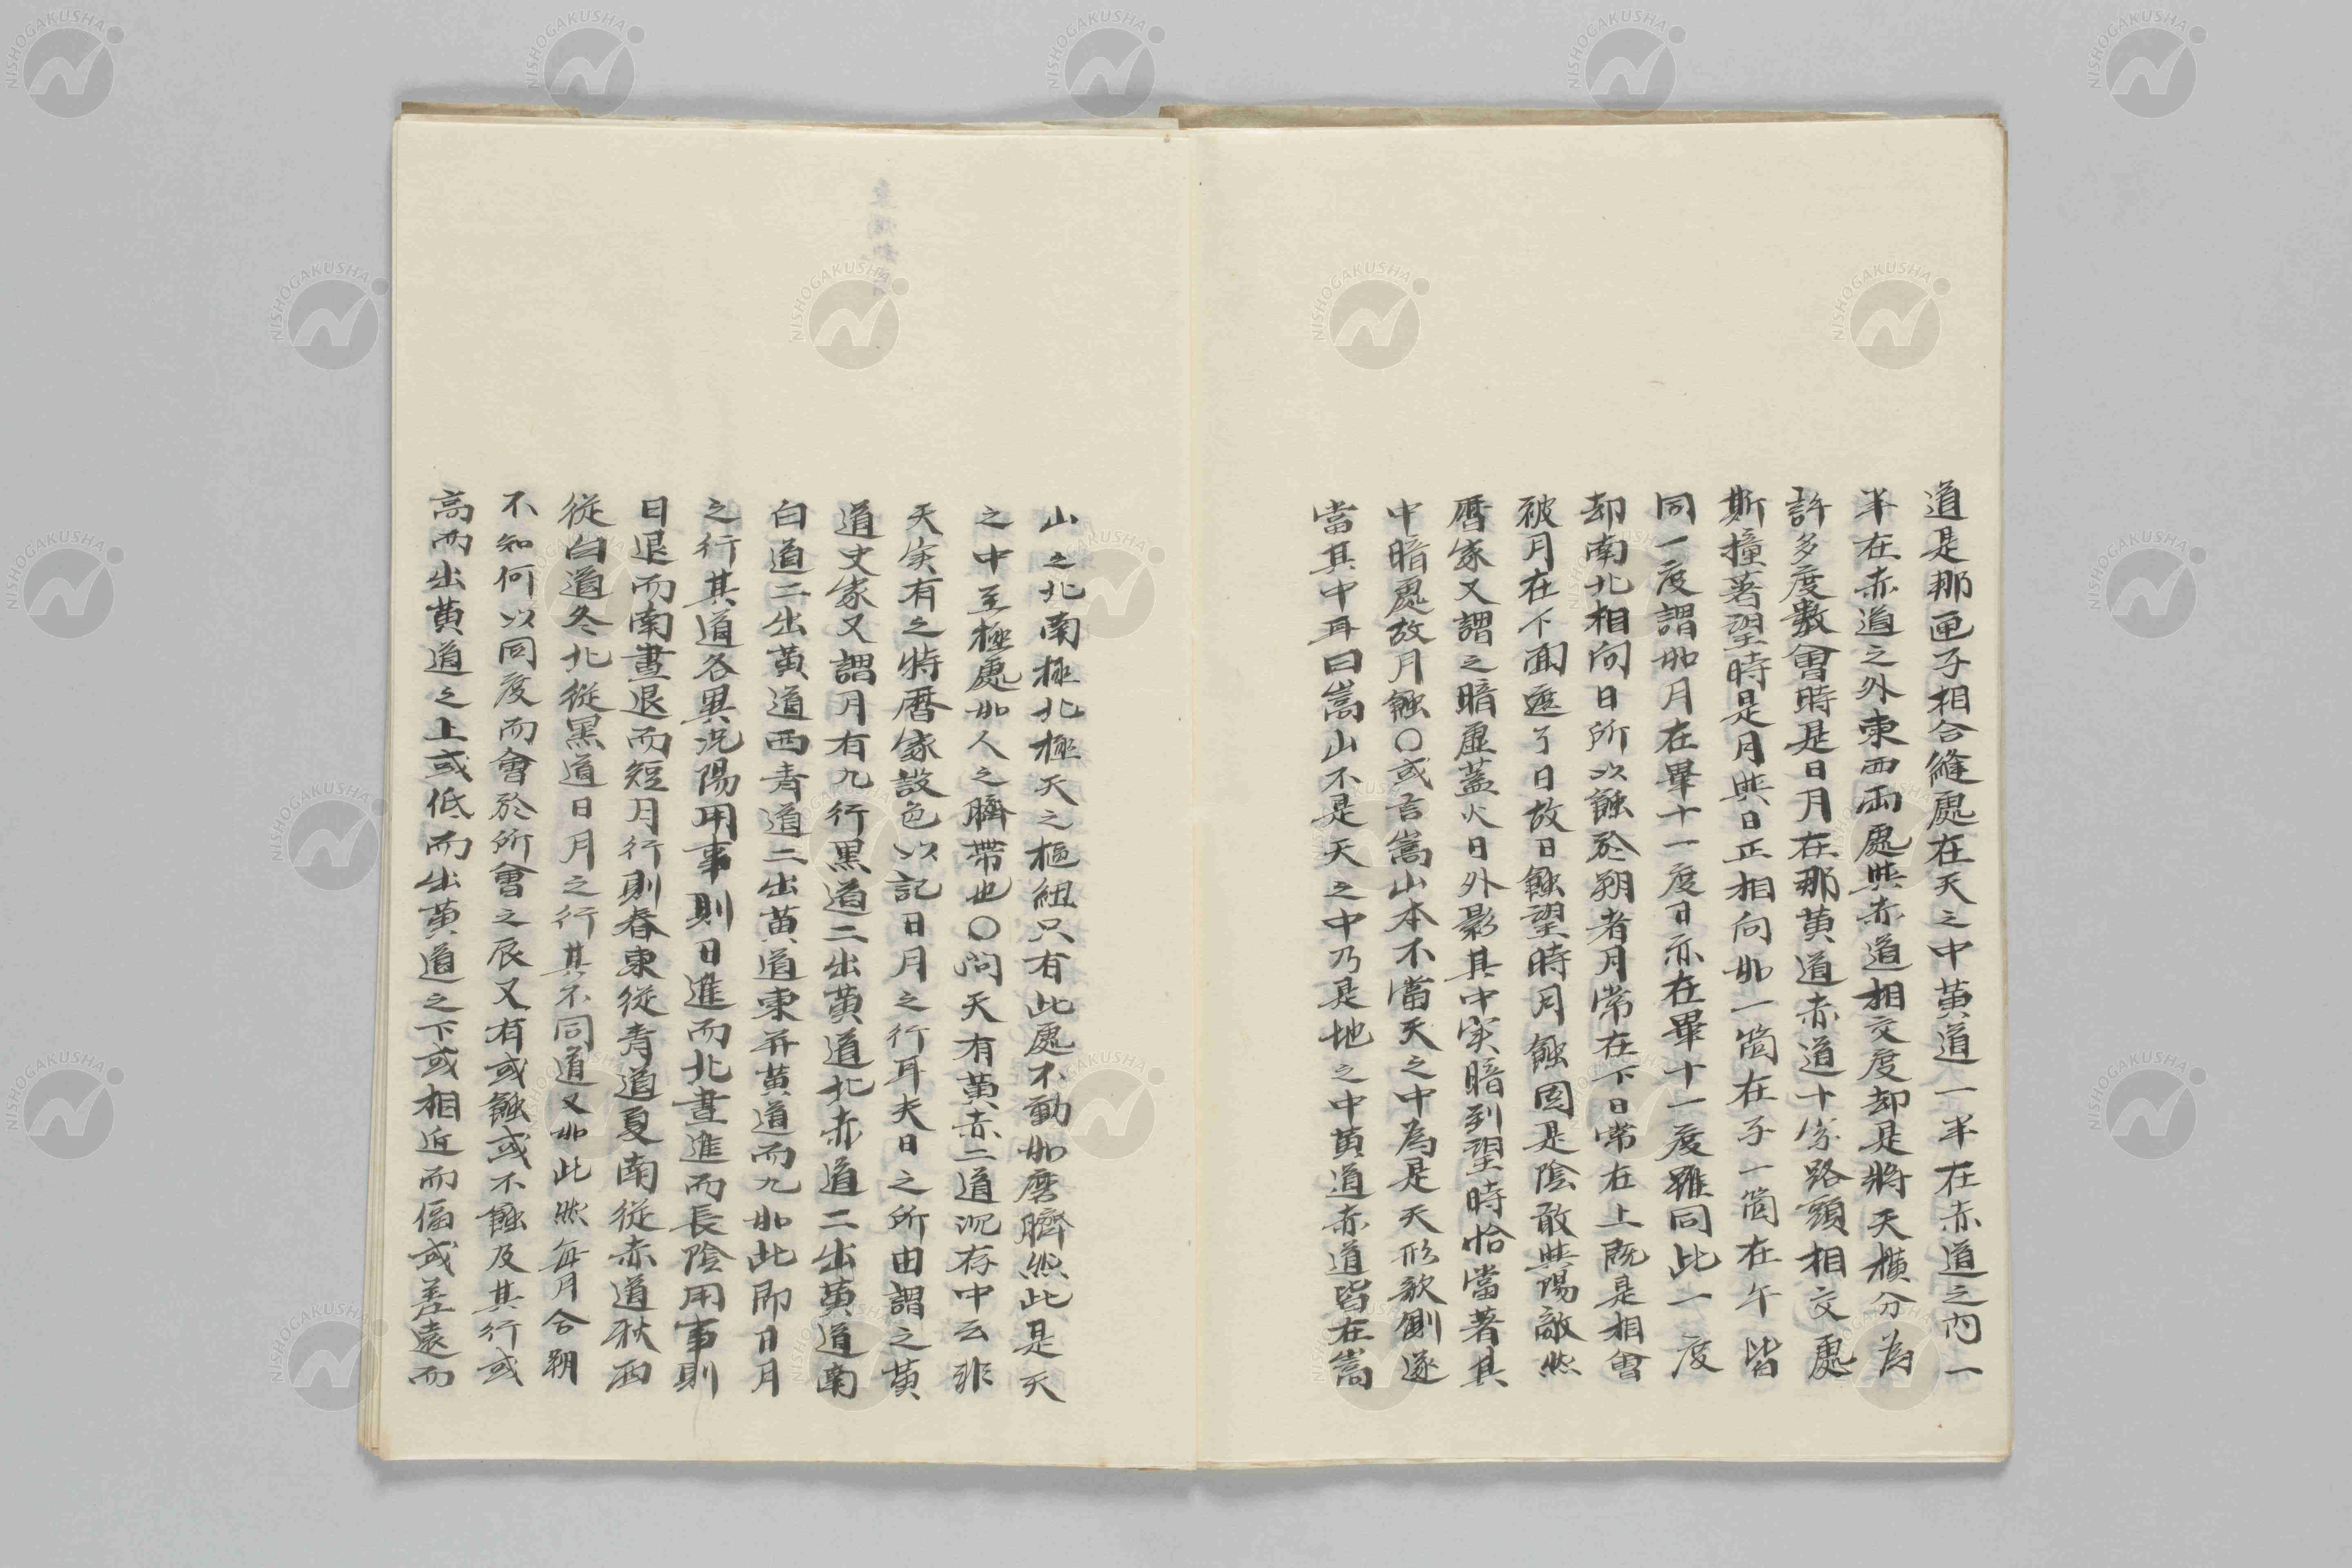 道是那匣子相合縫處在天之中黄道一半在赤道之内一
半在赤道之外東西両處與赤道相交度却是將天横分為
許多度數會時是日月在那黄道赤道十字路頭相交處
斯撞著望時是月與日正相向如一箇在子一箇在午皆
同一度謂如月在畢十一度日亦在畢十一度雖同此一度
却南北相向日所以蝕於朔者月常在下日常在上既是相會
被月在下面遮了日故日蝕望時月蝕固是陰敢與陽敵然
暦家又謂之暗虚蓋火日外影其中実暗到望時恰當著其
中暗處故月蝕〇或言嵩山本不當天之中為是天形欹側遂
當其中耳曰嵩山不是天之中乃是地之中黄道赤道皆在嵩
山之北南極北極天之樞紐只有此處不動如磨臍然此是天
之中至極處如人之臍帶也〇問天有黄赤二道沉存中云非
天実有之特暦家設色以記日月之行耳夫日之所由謂之黄
道史家又謂月有九行黒道二出黄道北赤道二出黄道南
白道二出黄道西青道二出黄道東并黄道而九如此即日月
之行其道各異況陽用事則日進而北晝進而長陰用事則
日退而南晝退而短月行則春東從青道夏南從赤道秋西
從白道冬北從黒道日月之行其不同道又如此然每月合朔
不知何以同度而會於所會之辰又有或蝕或不蝕及其行或
高而出黄道之上或低而出黄道之下或相近而偪或差遠而
NISHOGAKUSHA